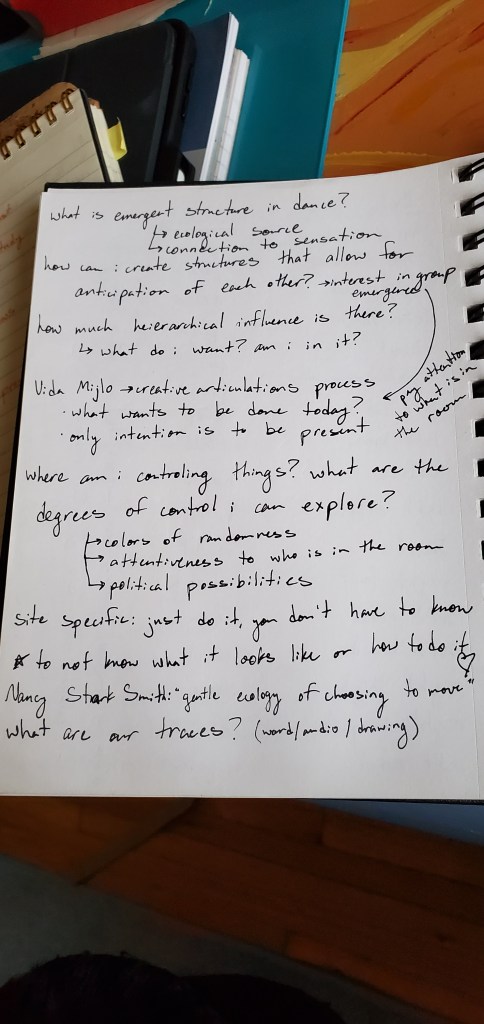 what is emergent structure in dance?
↳ ecological source
↳ connection to sensation
how can i create structures that allow for
anticipation of each other? → interest in group
emergence
how much heierarchical influence is there?
↳ what do i want? am i in it?
Vida Mijlo → creative articulations process
· what wants to be done today?
· only intention is to be present
pay attention
to what is in
the room
where am i controling things? what are the
degrees of control i can explore?
↳ colors of randomness
↳ attentiveness to who is in the room
↳ political possibilities
site specific: just do it, you don't have to know
☆ to not know what it looks like or how to do it ♡
Nancy Stark Smith: "gentle ecology of choosing to move"
what are our traces? (word/audio/drawing)